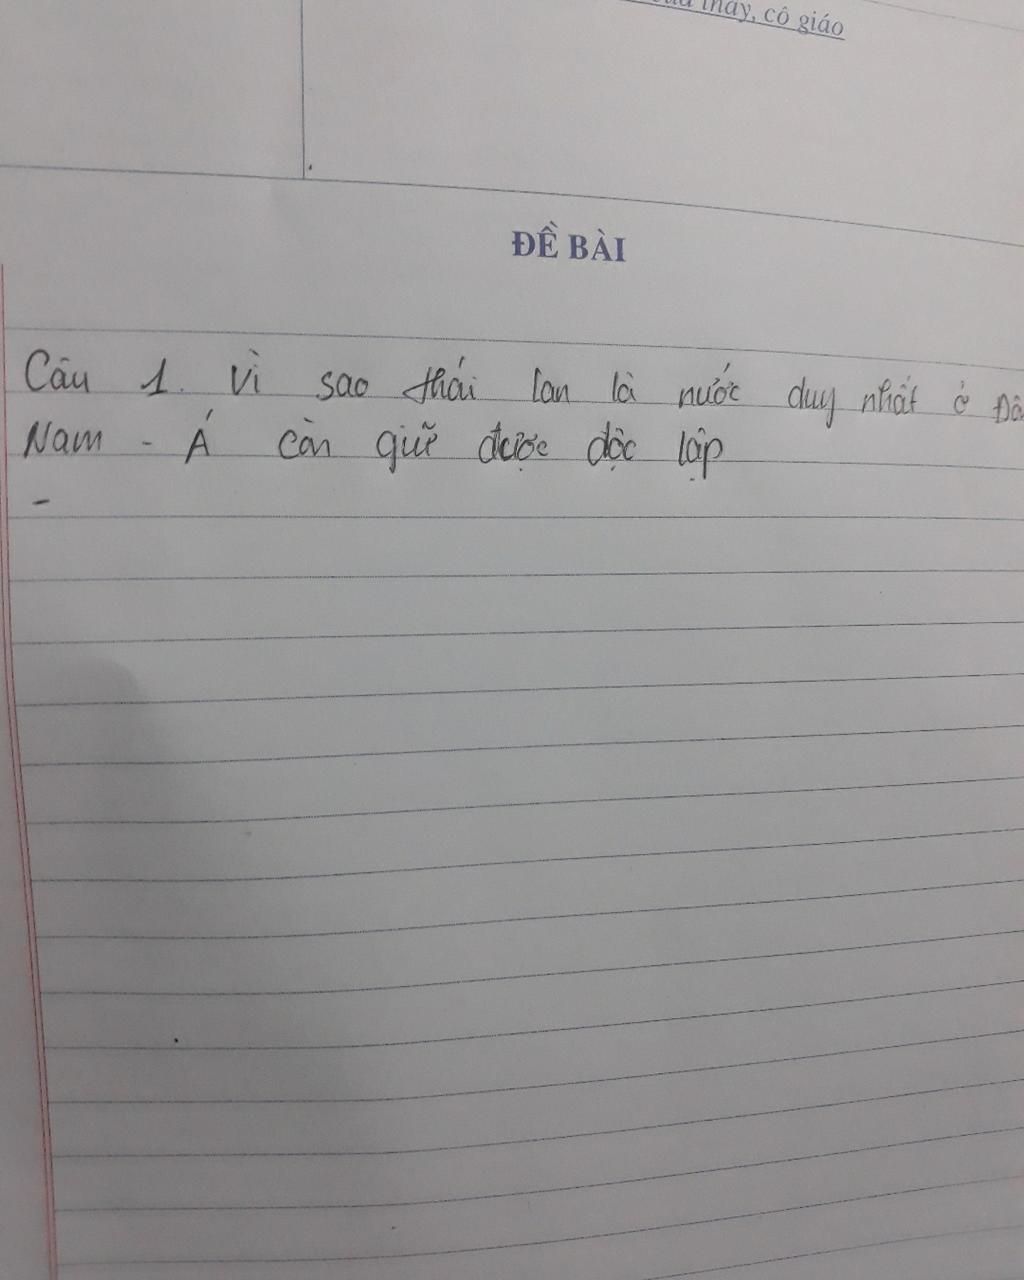 thầy, cô giáo
ĐỀ BÀI
Câu 1. Vì sao thái lan là nước duy nhất ở
Nam - Á còn giữ được độc lập
-